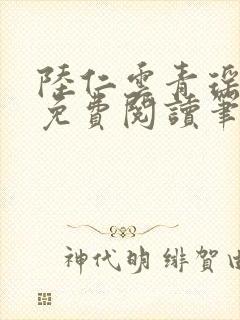 陸仁雲青瑤
免費閱讀筆
神代明緋賀由